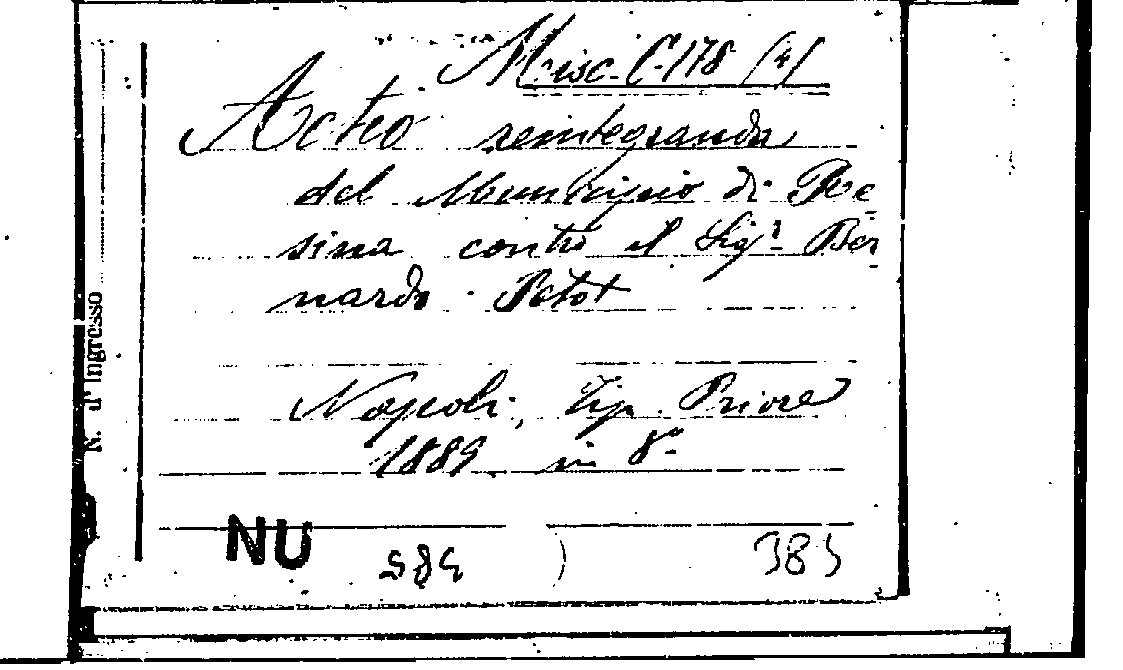 Misc. C-178 (4)
Actio reintegranda
del Municipio di Re
sina contro il Sigr. Ber
nardo Petot
Napoli, Tip. Priore
1889 in 8º
N. d'ingresso
NU
385